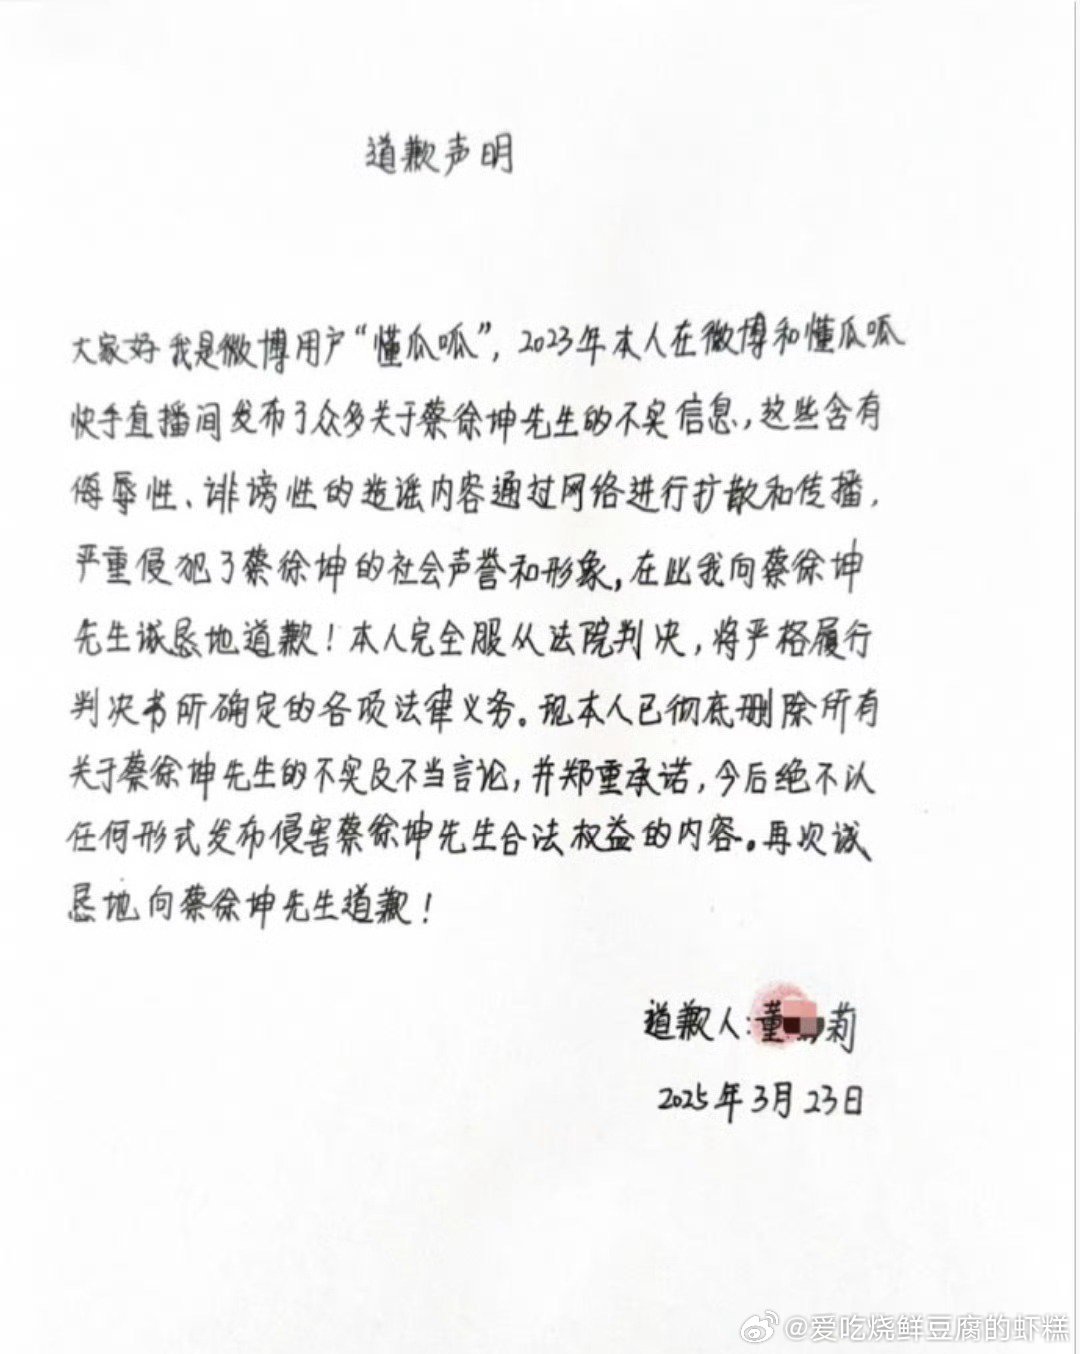 道歉声明
大家好我是微博用户“懂瓜呱”，2023年本人在微博和懂瓜呱
快手直播间发布了众多关于蔡徐坤先生的不实信息，这些含有
侮辱性、诽谤性的造谣内容通过网络进行扩散和传播，
严重侵犯了蔡徐坤的社会声誉和形象，在此我向蔡徐坤
先生诚恳地道歉！本人完全服从法院判决，将严格履行
判决书所确定的各项法律义务。现本人已彻底删除所有
关于蔡徐坤先生的不实及不当言论，并郑重承诺，今后绝不以
任何形式发布侵害蔡徐坤先生合法权益的内容。再次诚
恳地向蔡徐坤先生道歉！
道歉人：董 莉
2025年3月23日
@爱吃烧鲜豆腐的虾糕